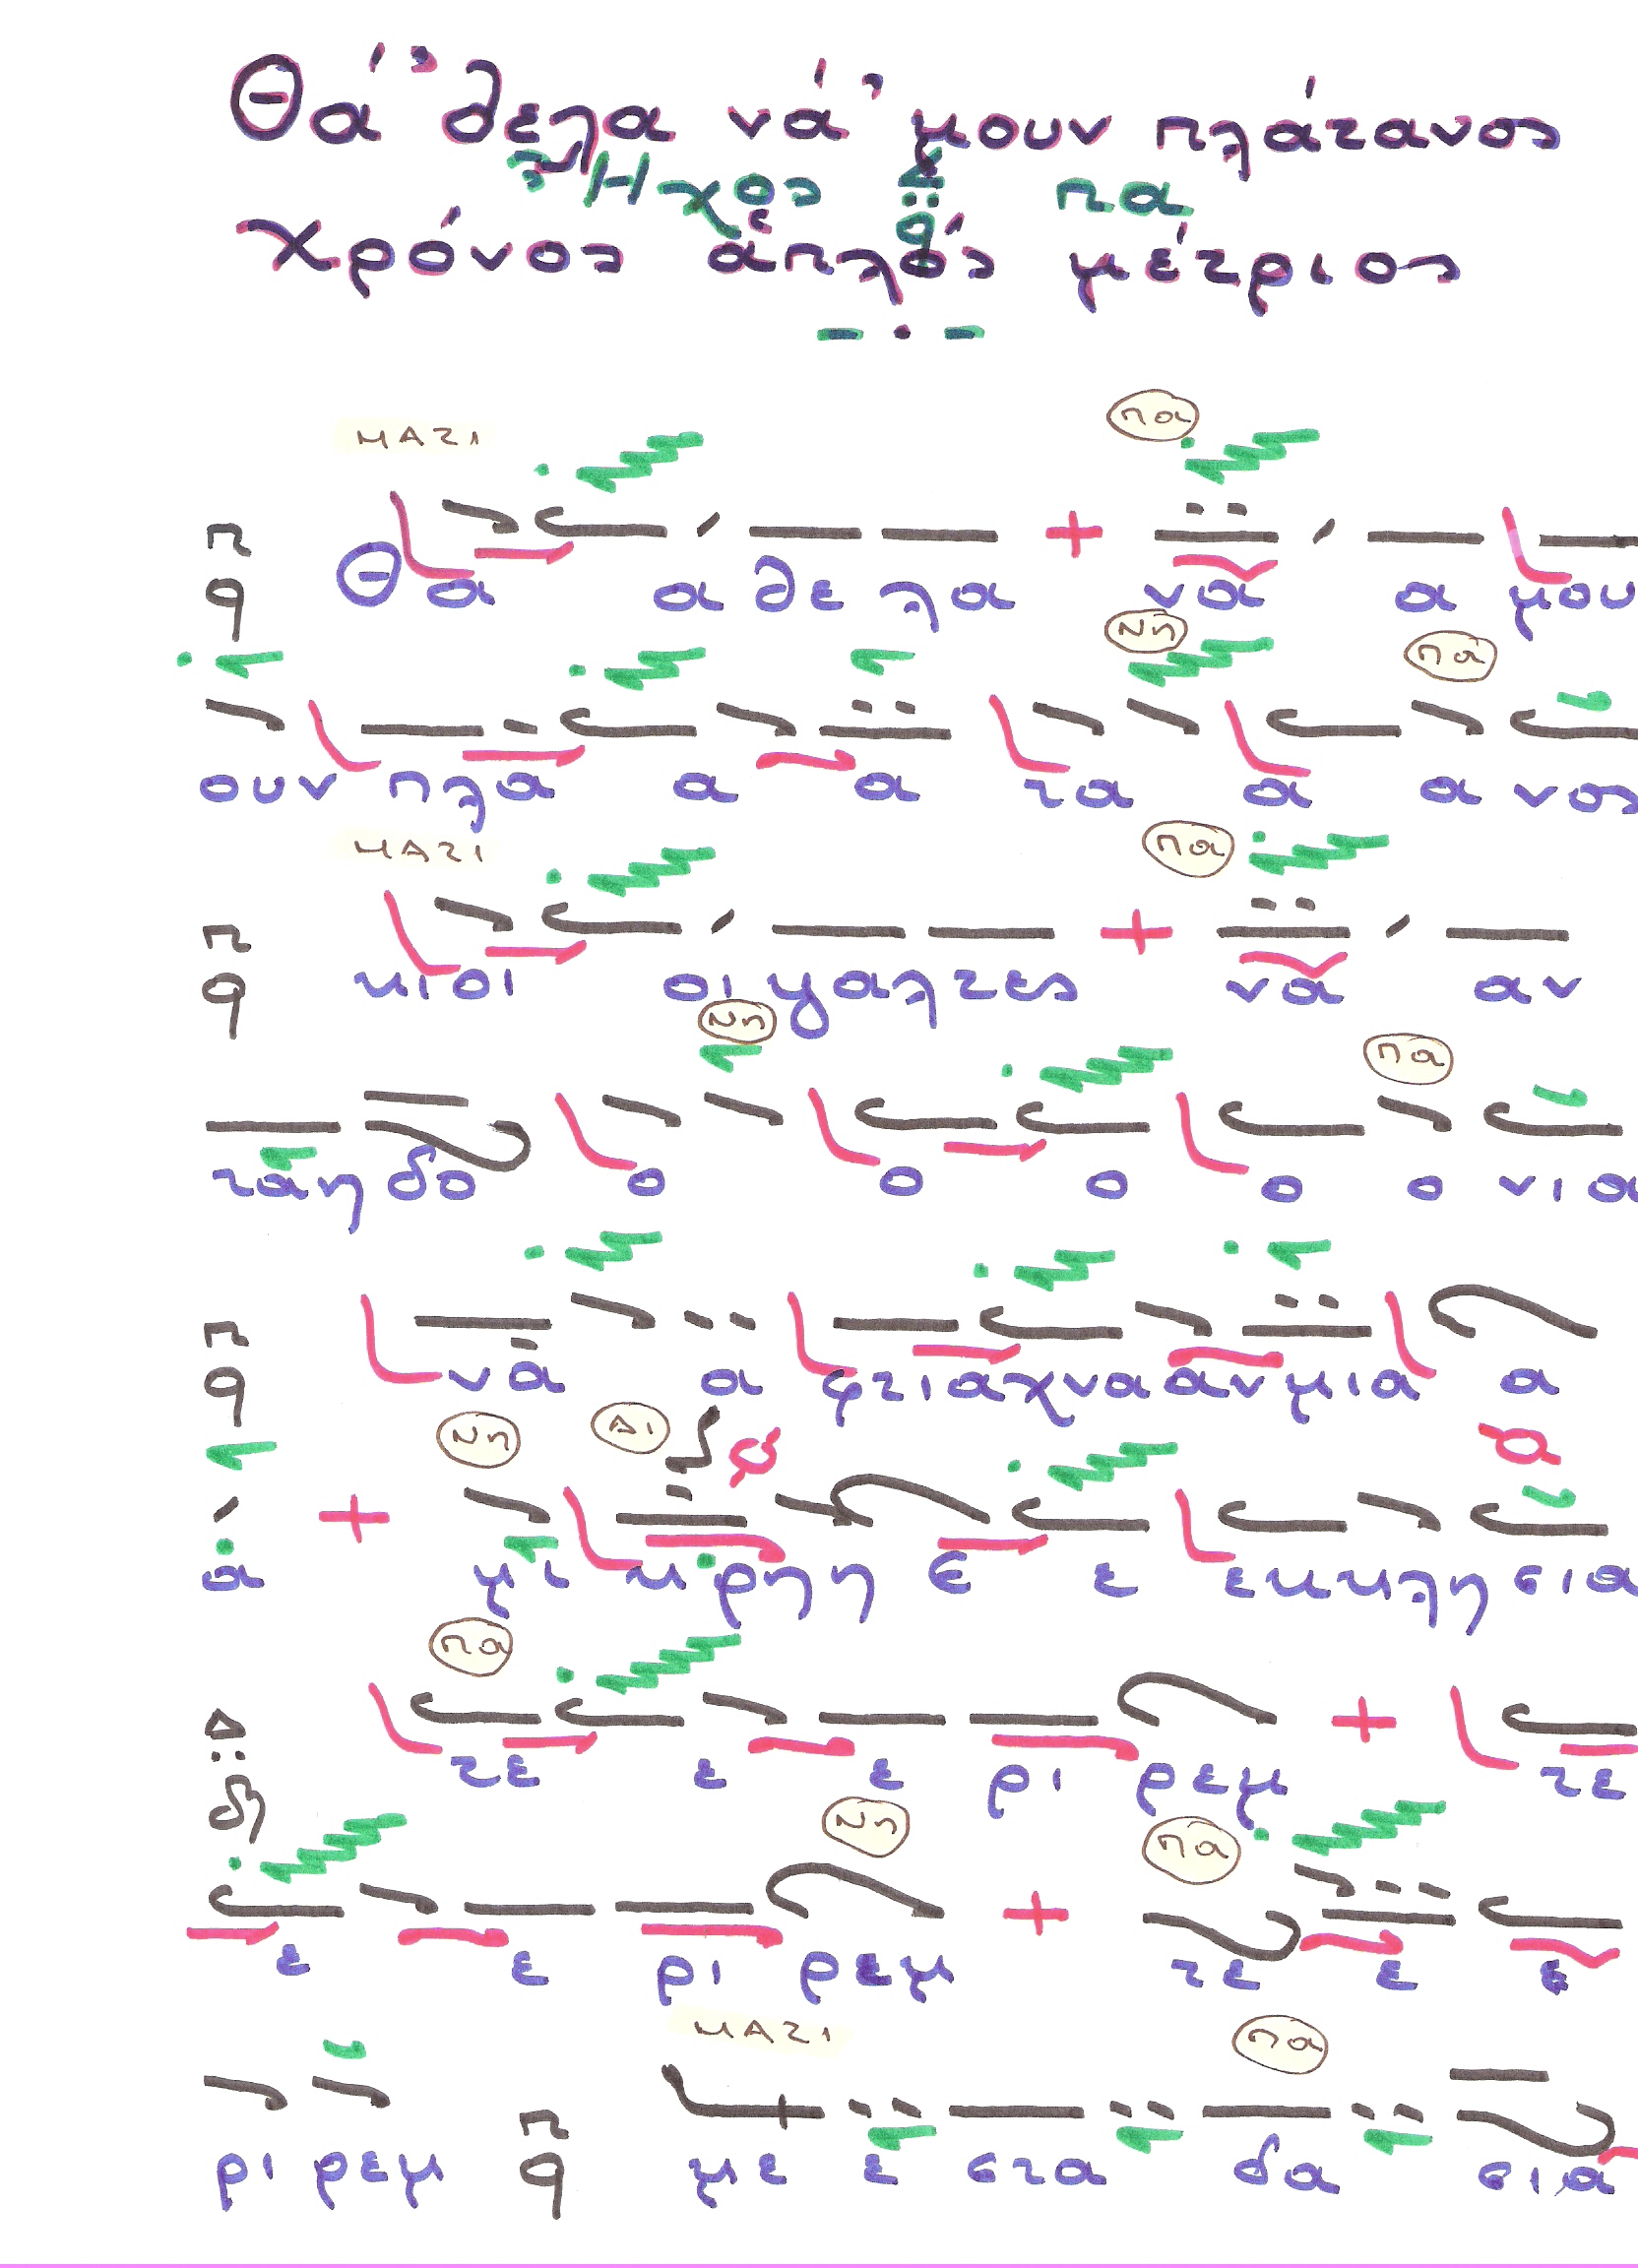 Θά 'θελα νά 'μουν πλάτανος
Ἦχος πα
χρόνος ἁπλός μέτριος
ΜΑΖΙ πα
π
q
Θα α θε λα να α μου
Νη πα
ουν πλα α α τα α α νος
ΜΑΖΙ πα
π
q
κιοι οι γαλτες να αν
Νη πα
ταη δο ο ο ο ο ο νια
π
q
να α φτιαχνααν μια α
Νη Δι
α μι κρηη ε ε εκκλη σια
πα
Δ
δη
τε ε ε ρι ρεμ τε
Νη πα
ε ε ρι ρεμ τε ε ε
ΜΑΖΙ πα
π
q
ρι ρεμ με ε στα δα σια